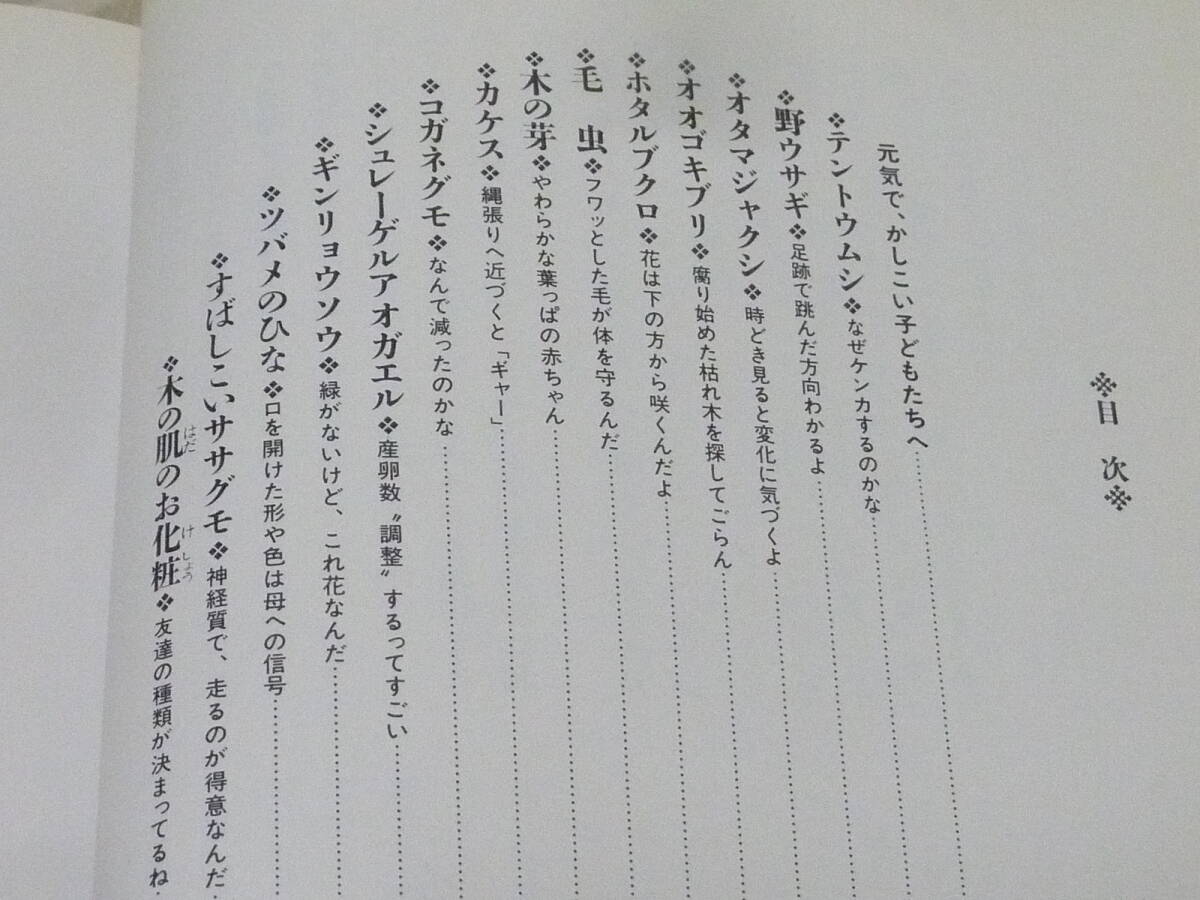 ※目次※
元気で、かしこい子どもたちへ……………
❖テントウムシ❖なぜケンカするのかな……………
❖野ウサギ❖足跡で跳んだ方向わかるよ……………
❖オタマジャクシ❖時どき見ると変化に気づくよ……………
❖オオゴキブリ❖腐り始めた枯れ木を探してごらん……………
❖ホタルブクロ❖花は下の方から咲くんだよ……………
❖毛虫❖フワッとした毛が体を守るんだ……………
❖木の芽❖やわらかな葉っぱの赤ちゃん……………
❖カケス❖縄張りへ近づくと「ギャー」……………
❖コガネグモ❖なんで減ったのかな……………
❖シュレーゲルアオガエル❖産卵数〝調整〟するってすごい……………
❖ギンリョウソウ❖緑がないけど、これ花なんだ……………
❖ツバメのひな❖口を開けた形や色は母への信号……………
❖すばしこいササグモ❖神経質で、走るのが得意なんだ…
❖木の肌のお化粧❖友達の種類が決まってるね…
はだ
けしょう